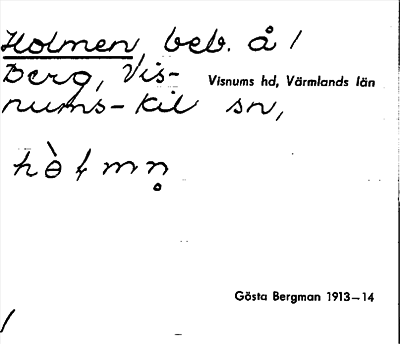 Holmen, beb. å /
Berg, Vis-
nums-kil sn,
Visnums hd, Värmlands län
Gösta Bergman 1913–14
/